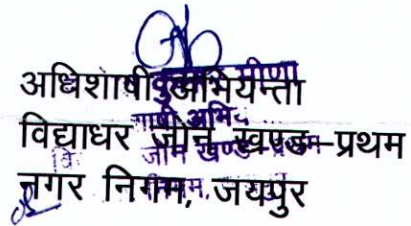 अधिशाषी अभियन्ता
विद्याधर जोन खण्ड-प्रथम
नगर निगम, जयपुर